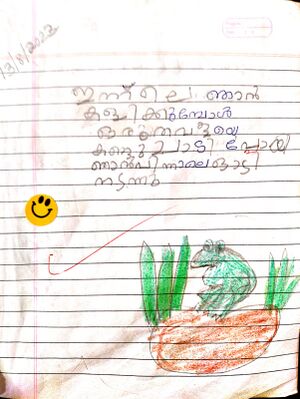 13/8/2023
ഇന്ന് ലെ ഞാൻ
കളിക്കുമ്പോൾ
ഒരു തവളയെ
കണ്ടു ചാടി പോയി
ഞാൻ പിന്നാലെ ഓടി
നടന്നു